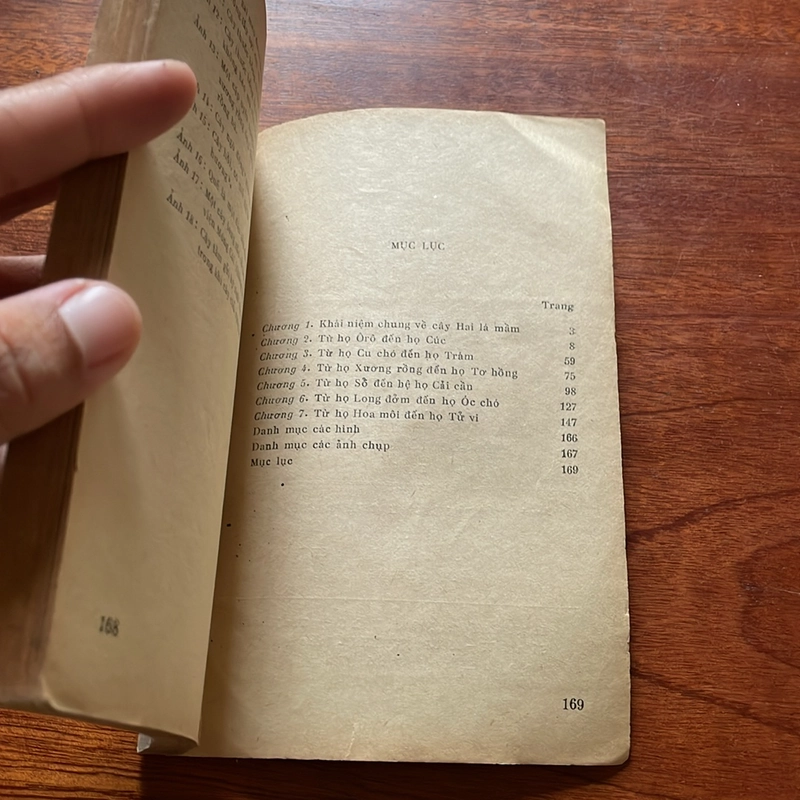 Ảnh 16:
Ảnh 17: Một cây
Ảnh 18: Cây
168
MỤC LỤC
Trang
Chương 1. Khái niệm chung về cây Hai lá mầm 3
Chương 2. Từ họ Ôrô đến họ Cúc 8
Chương 3. Từ họ Cu chó đến họ Tràm 59
Chương 4. Từ họ Xương rồng đến họ Tơ hồng 75
Chương 5. Từ họ Sổ đến hệ họ Cải cần 98
Chương 6. Từ họ Long đởm đến họ Óc chó 127
Chương 7. Từ họ Hoa môi đến họ Tử vi 147
Danh mục các hình 166
Danh mục các ảnh chụp 167
Mục lục 169
169